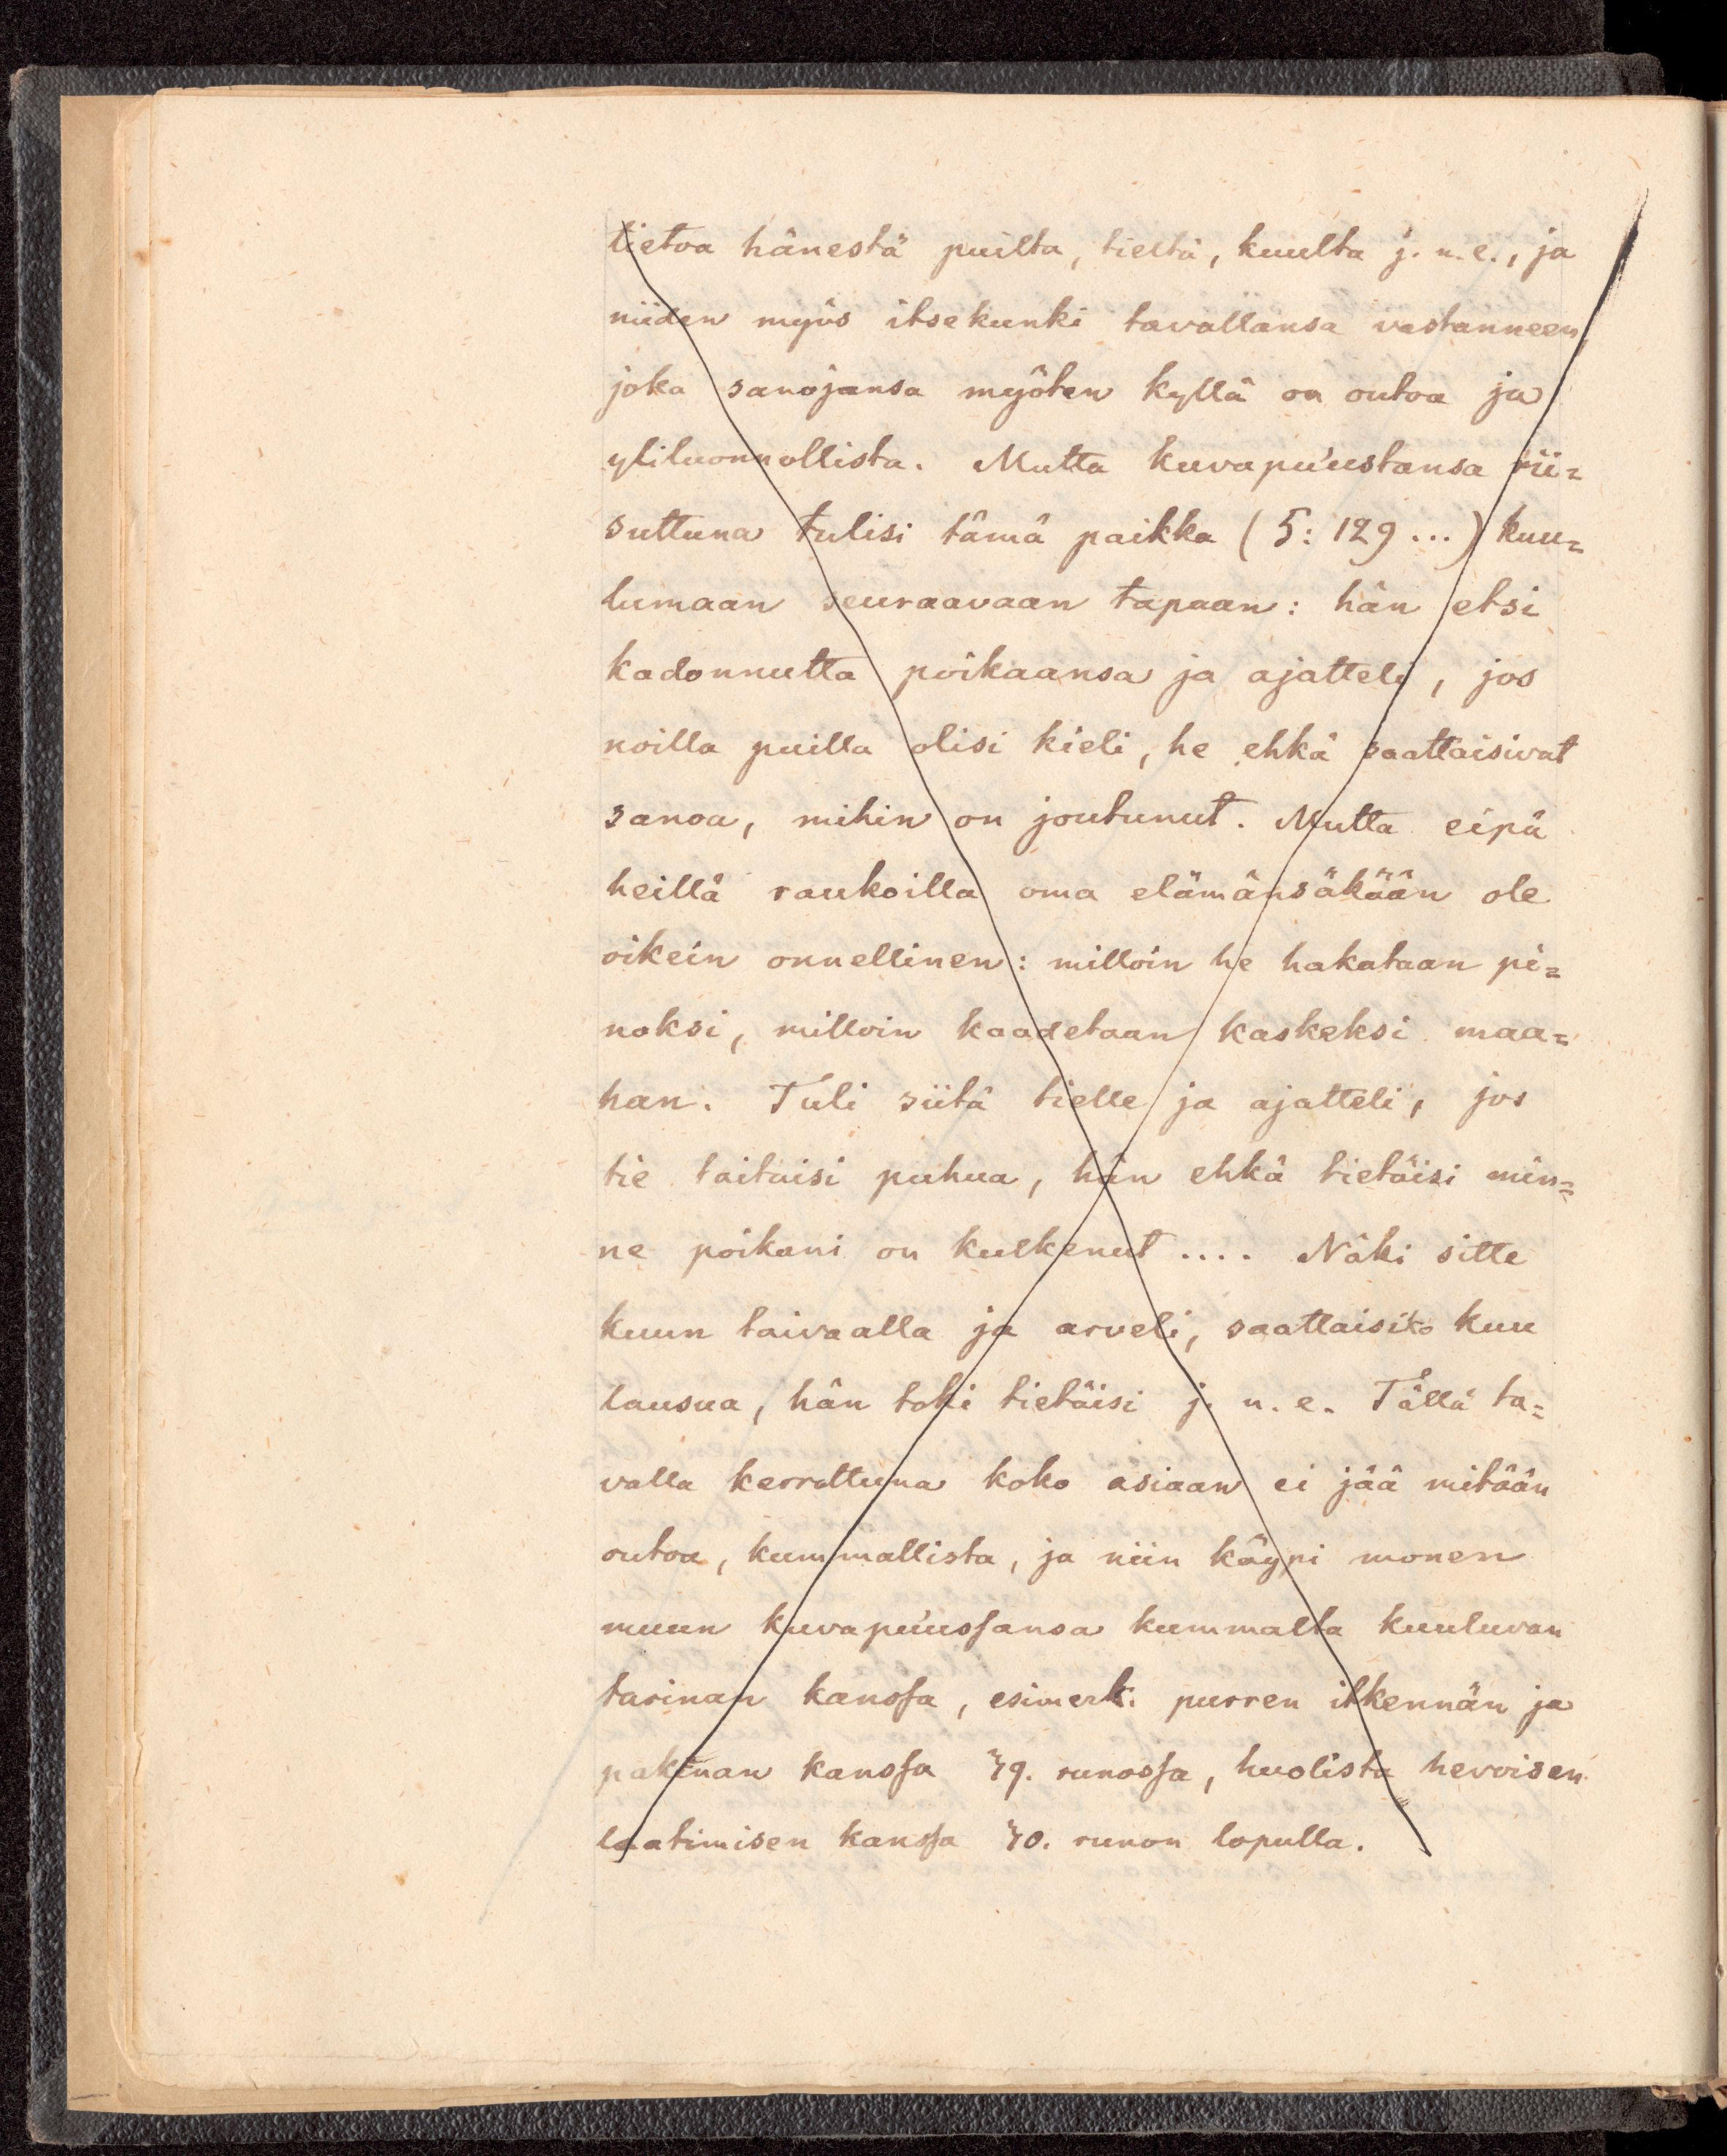 tietoa hänestä puilta, tieltä, kuulta j. n. e., ja
niiden myös itsekunki tavallansa vastanneen
joka sanojansa myöten kyllä on outoa ja
yliluonnollista. Mutta kuvapu'ustansa rii=
suttuna tulisi tämä paikka (5: 129 ...) kuu=
lumaan seuraavaan tapaan: hän etsi
kadonnutta poikaansa ja ajatteli, jos
noilla puilla olisi kieli, he ehkä saattaisivat
sanoa, mihin on joutunut. Mutta eipä
heillä raukoilla oma elämänsäkään ole
oikein onnellinen: milloin he hakataan pi=
noksi, milloin kaadetaan kaskeksi maa=
han. Tuli siitä tielle ja ajatteli, jos
tie taitaisi puhua, hän ehkä tietäisi min=
ne poikani on kulkenut .... Näki sitte
kuun taivaalla ja arveli, saattaisiko kuu
lausua, hän toki tietäisi j. n. e. Tällä ta=
valla kerrottuna koko asiaan ei jää mitään
outoa, kummallista, ja niin käypi monen
muun kuvapu'ussansa kummalta kuuluvan
tarinan kanssa, esimerk. purren itkennän ja
pakinan kanssa 39. runossa, huolista hevoisen
laatimisen kanssa 30. runon lopulla.